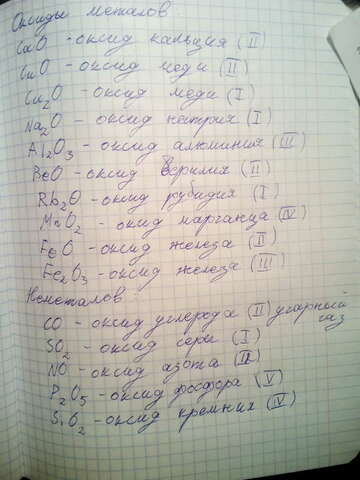 Оксиды металов
CaO - оксид кальция (II)
CuO - оксид меди (II)
Cu2O - оксид меди (I)
Na2O - оксид натрия (I)
Al2O3 - оксид алюминия (III)
BeO - оксид берилия (II)
Rb2O - оксид рубидия (I)
MnO2 - оксид марганца (IV)
FeO - оксид железа (II)
Fe2O3 - оксид железа (III)
Неметалов:
CO - оксид углерода (II) угарный газ
SO2 - оксид серы (I)
NO - оксид азота (II)
P2O5 - оксид фосфора (V)
SiO2 - оксид кремния (IV)